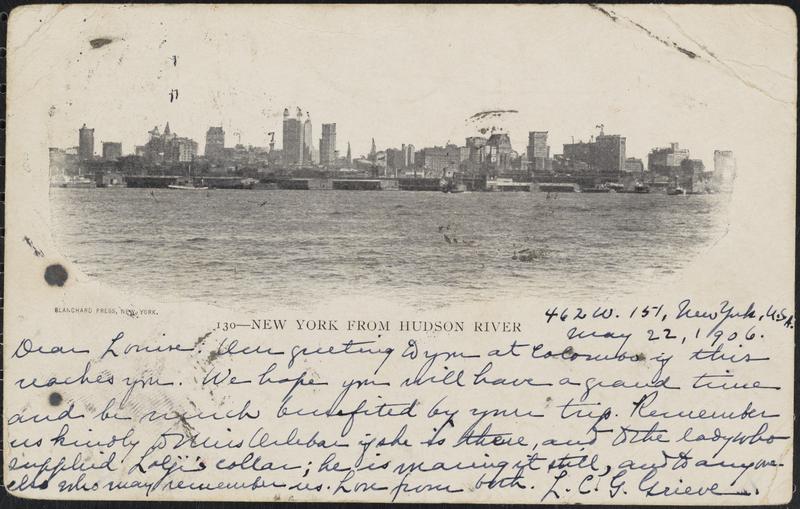 BLANCHARD PRESS, NEW YORK.
130—NEW YORK FROM HUDSON RIVER
462 W. 151, New York, U.S.A.
May 22, 1906.
Dear Louise. Our greeting to you at Colombo if this
reaches you. We hope you will have a grand time
and be much benefited by your trip. Remember
us kindly to Miss if she is there, and to the lady who
supplied collar; he is it still, and to anyone
else who may remember us. Love from both. L. C. G. Grieve.